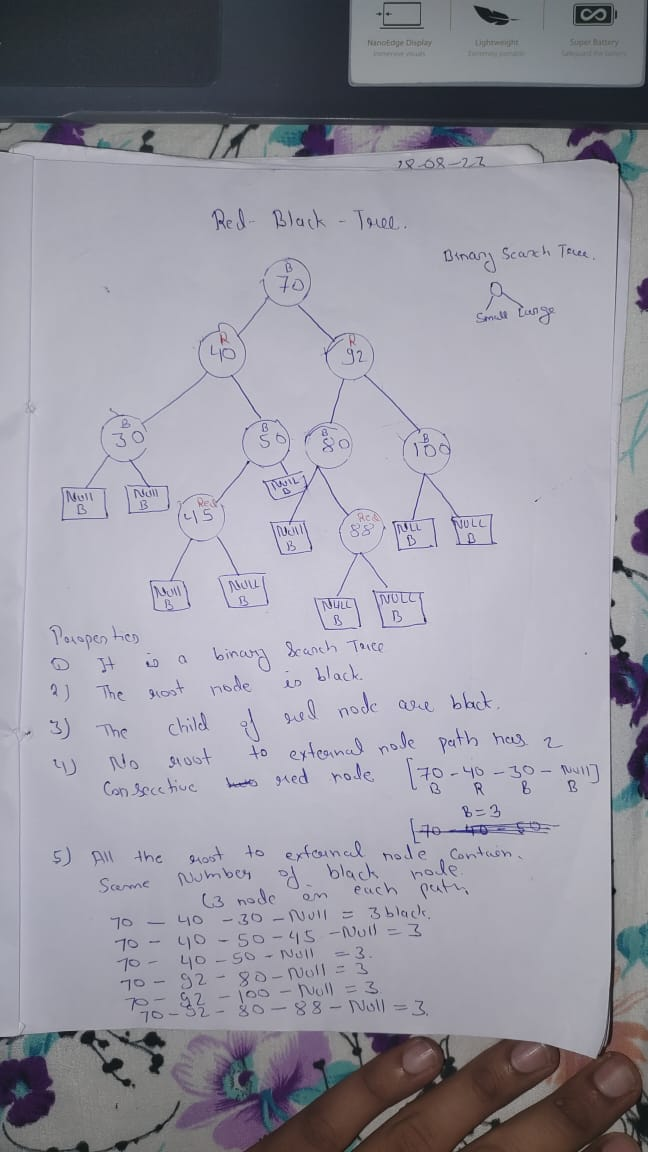 NanoEdge Display
Immersive visuals
Lightweight
Extremely portable
Super Battery
Safeguard the battery
28-08-23
Red-Black-Tree.
Binary Search Tree.
Small Large
B
70
R
40
R
92
B
30
B
50
B
80
B
100
Null
B
Null
B
Red
45
NULL
B
Null
B
Red
88
NULL
B
NULL
B
Null
B
NULL
B
NULL
B
NULL
B
Properties
① It is a binary Search Tree
2) The root node is black.
3) The child of red node are black.
4) No root to external node path has 2
Consecctive red node [70-40-30-Null]
B R B B
B=3
[70 40 50
5) All the root to external node Contain.
Same Number of black node.
(3 node in each path
70 - 40 - 30 - Null = 3 black.
70 - 40 - 50 - 45 - Null = 3
70 - 40 - 50 - Null = 3.
70 - 92 - 80 - Null = 3
70 - 92 - 100 - Null = 3
70 - 92 - 80 - 88 - Null = 3.